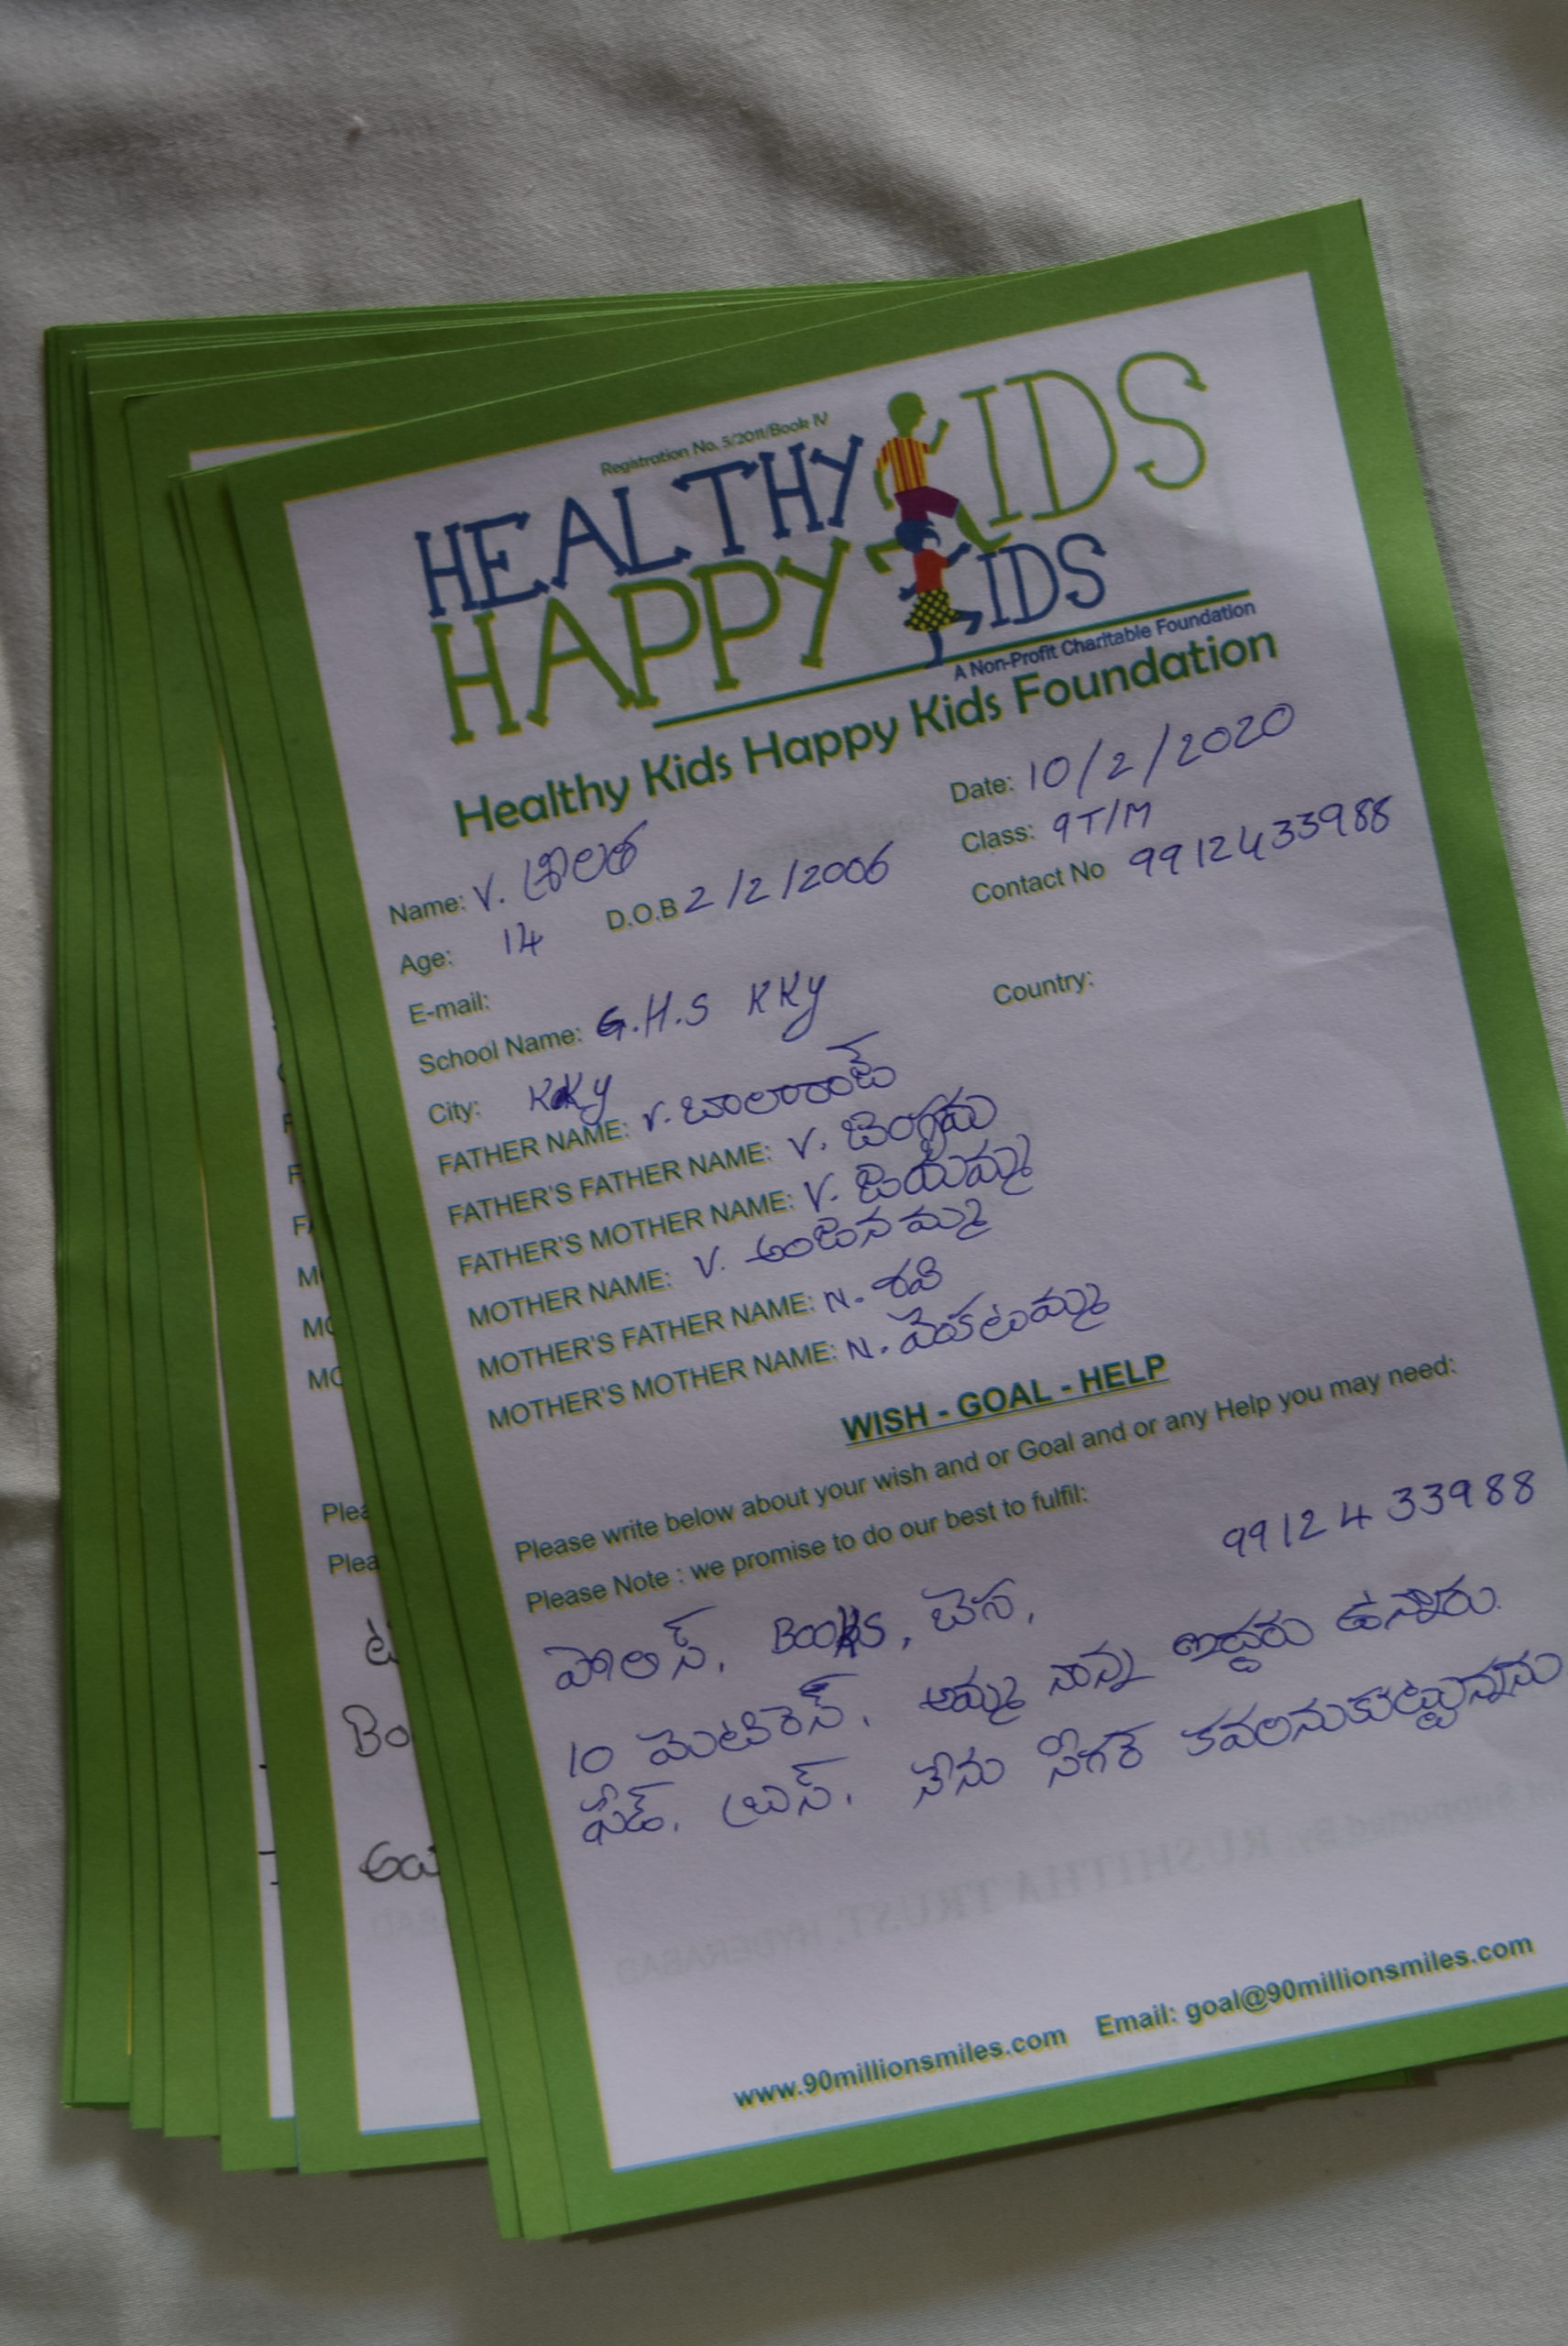 Registration No. 5/2011/Book IV
HEALTHY KIDS
HAPPY KIDS
A Non-Profit Charitable Foundation
Healthy Kids Happy Kids Foundation
Date: 10/2/2020
Name: V. శ్రీలత
Class: 9T/M
Age: 14 D.O.B 2/2/2006
Contact No 9912433988
E-mail:
School Name: G.H.S KKY
Country:
City: KKY
FATHER NAME: V.
FATHER'S FATHER NAME: V.
FATHER'S MOTHER NAME: V. జయమ్మ
MOTHER NAME: V. అంజనమ్మ
MOTHER'S FATHER NAME: N. శవి
MOTHER'S MOTHER NAME: N. వెంకటమ్మ
WISH - GOAL - HELP
Please write below about your wish and or Goal and or any Help you may need:
Please Note : we promise to do our best to fulfil:
9912433988
పోలిస్, Books,
10 అమ్మ నాన్న ఇద్దరు ఉన్నారు.
నేను సింగర్ కవలనుకుటున్నాను
www.90millionsmiles.com Email: goal@90millionsmiles.com
Plea
Plea
Bo